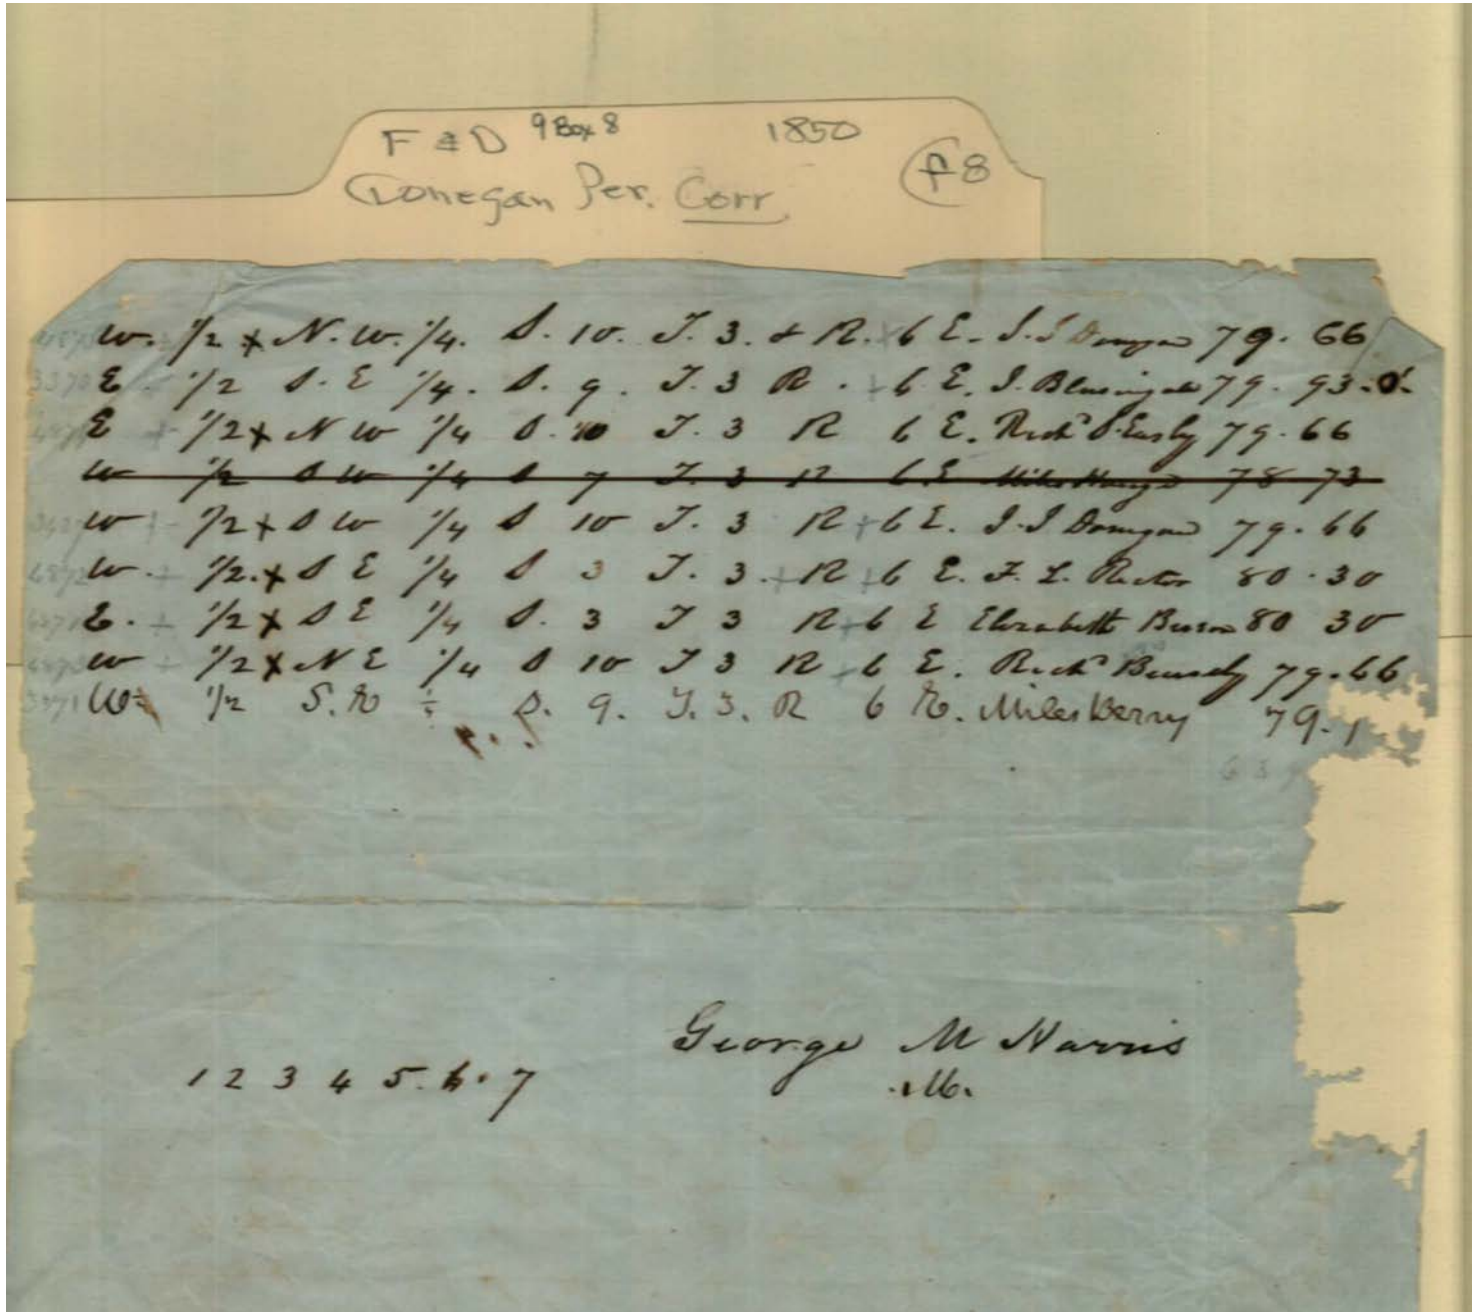 F & D 9 Box 8 1850
Donegan Per. Corr. f8
W. 1/2 x N. W. 1/4. S. 10. T. 3. & R. 6 E. J. J Donegan 79. 66
E 1/2 S. E 1/4. S. 9. T. 3 R. 6 E. J. 79. 93
E 1/2 x N W 1/4 S. 10 T. 3 R 6 E. Richd 79. 66
W 1/2 S W 1/4 S 7 T. 3 R 6 E 78 73
W 1/2 x S W 1/4 S 10 T. 3 R 6 E. J. J Donegan 79. 66
W. 1/2. x S E 1/4 S 3 T. 3. R 6 E. F. L. Rector 80. 30
E. 1/2 x S E 1/4 S. 3 T 3 R 6 E Elizabeth 80 30
W 1/2 x N E 1/4 S 10 T 3 R 6 E. Richd 79. 66
3371 W 1/2 S. E ÷ S. 9. T. 3. R 6 E. Miles Berry 79. 1
George M Harris
1 2 3 4 5. 6. 7